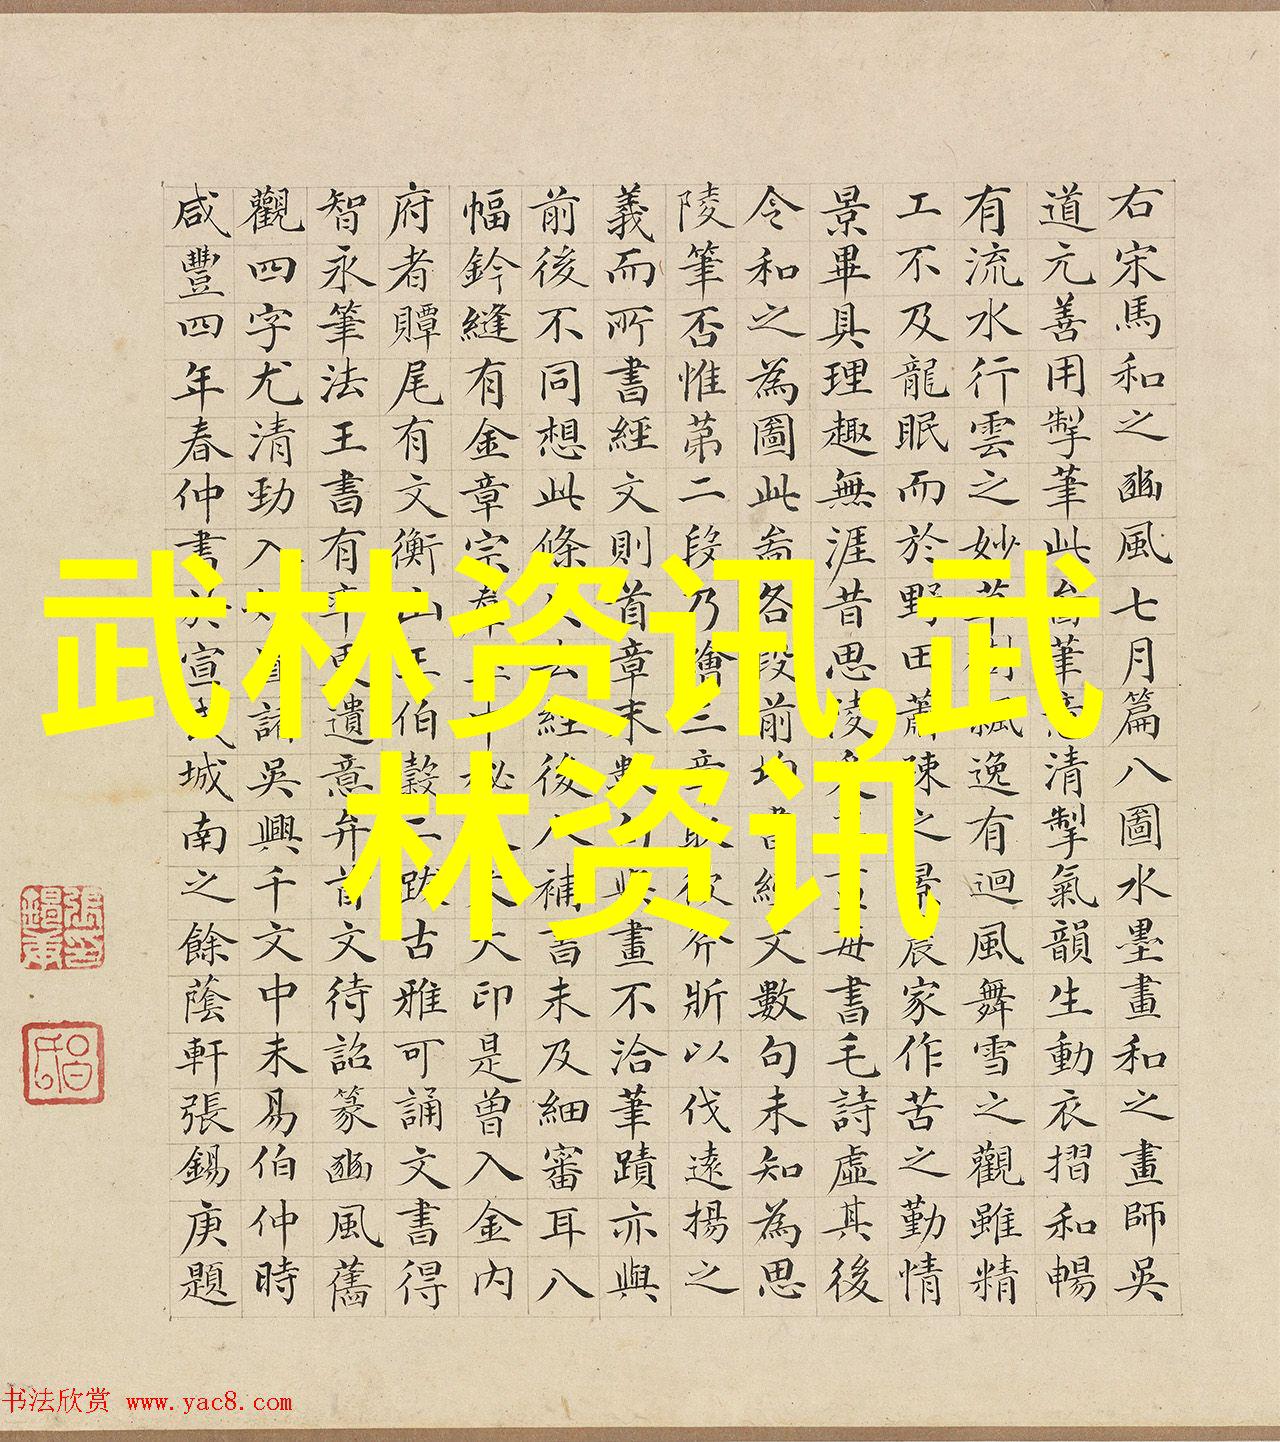 右宋馬和之豳風七月篇八圖水墨畫和之畫師吳
道元善用掣筆此筆清掣氣韻生動衣摺和暢
有流水行雲之妙草樹飄逸有迴風舞雪之觀雖精
工不及龍眠而於野田蕭陳之景家作苦之勤情
景畢具理趣無涯昔思陵每書毛詩虛其後
令和之為圖此啚各段前均書經文數句未知為思
陵筆否惟第二段乃繪三章取彼斧斨以伐遠揚之
義而所書經文則首章末數句與畫不洽筆蹟亦與
前後不同想此條去經後人補書未及細審耳八
幅鈐縫有金章宗秘大印是曾入金內
府者贉尾有文衡山王伯穀二跋古雅可誦文書得
智永筆法王書有率更遺意弁首文待詔篆豳風舊
觀四字尤清勁入妙置諸吳興千文中未易伯仲時
咸豐四年春仲書於宣武城南之餘蔭軒張錫庚題
武林资讯,武
林资讯
張錫庚印
书法欣赏 www.yac8.com